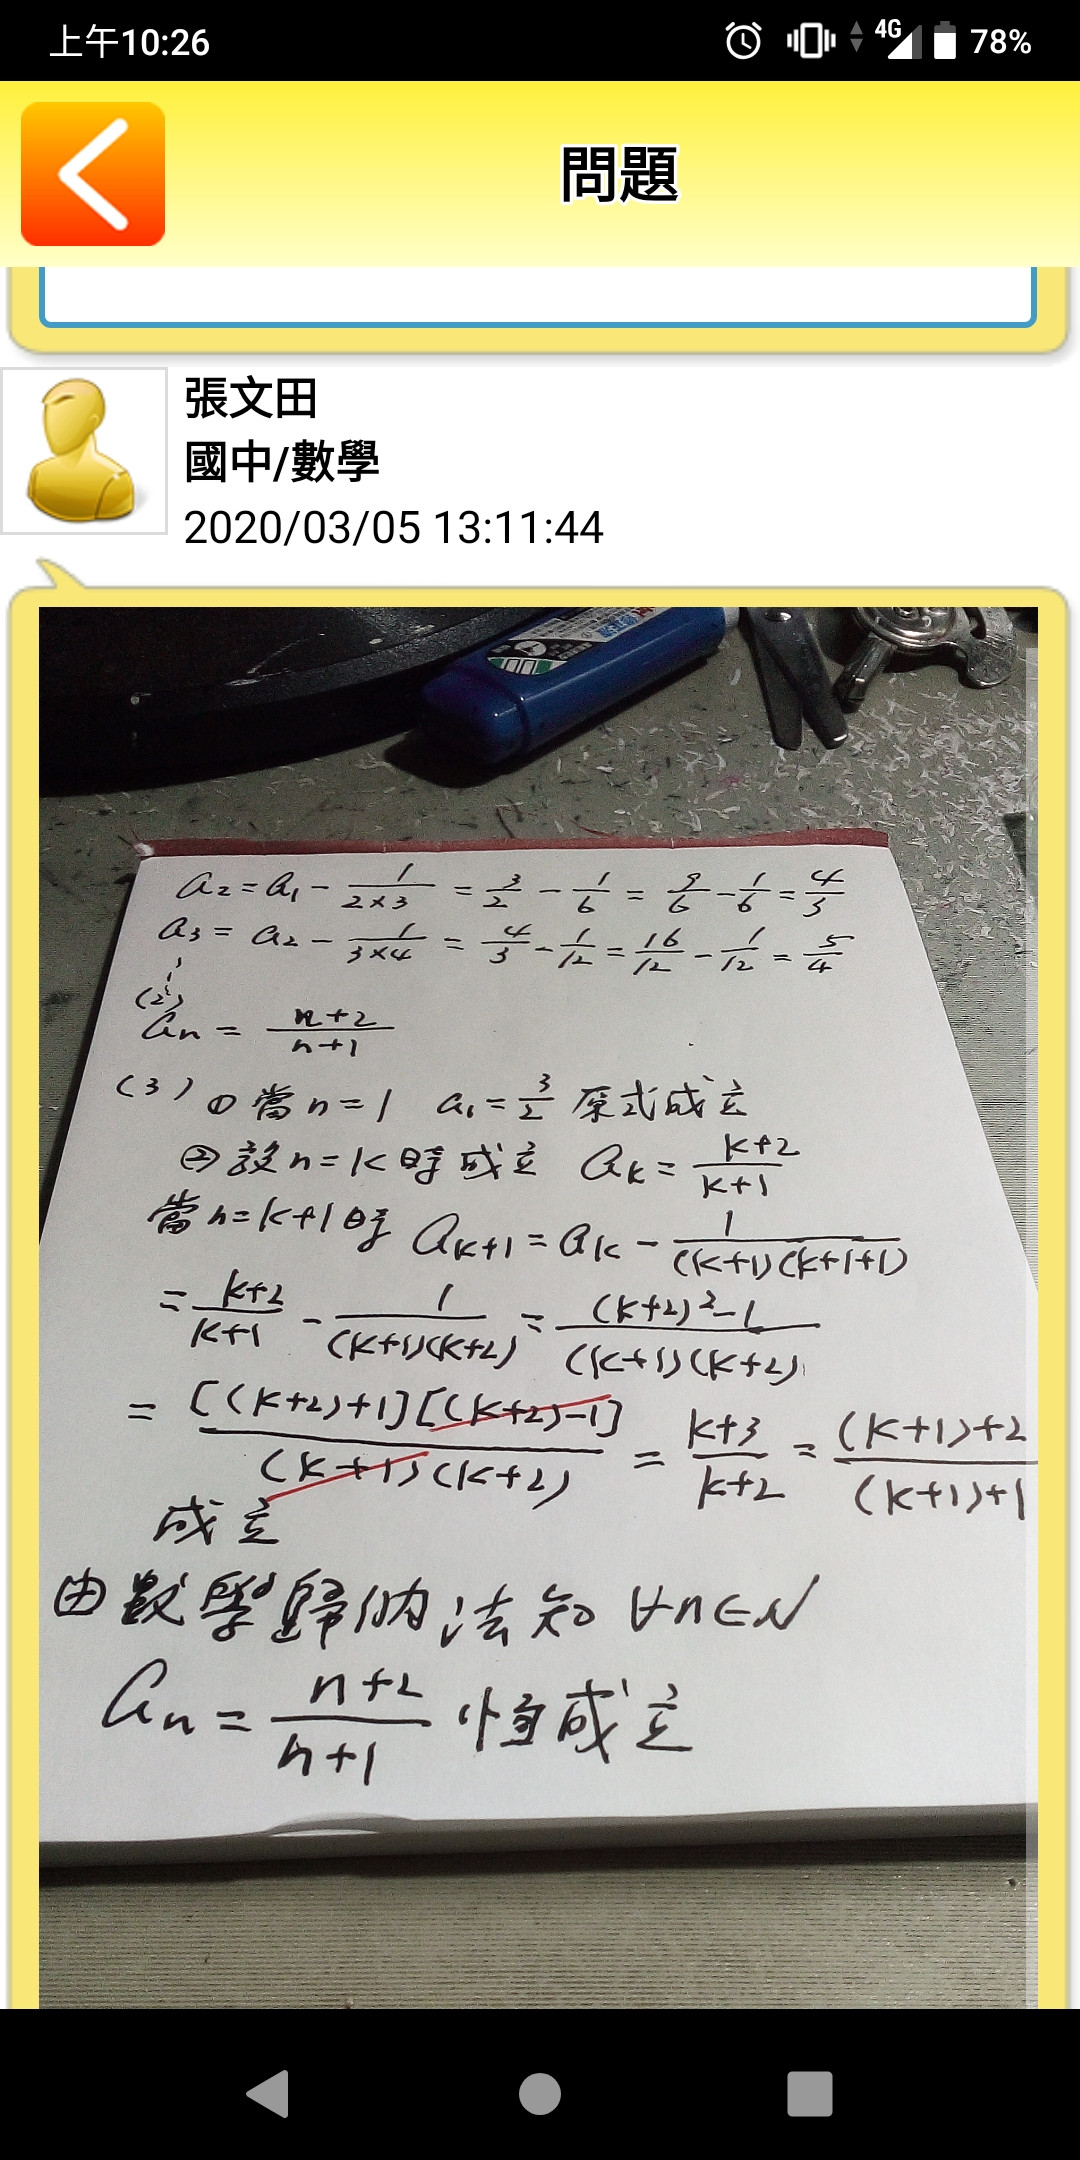 上午10:26 4G 78%
問題
張文田
國中/數學
2020/03/05 13:11:44
a₂ = a₁ - 1/(2×3) = 3/2 - 1/6 = 9/6 - 1/6 = 4/3
a₃ = a₂ - 1/(3×4) = 4/3 - 1/12 = 16/12 - 1/12 = 5/4
(2)
aₙ = (n+2)/(n+1)
(3) ① 當 n=1 a₁ = 3/2 原式成立
② 設 n=k 時成立 aₖ = (k+2)/(k+1)
當 n=k+1時 aₖ₊₁ = aₖ - 1/((k+1)(k+1+1))
= (k+2)/(k+1) - 1/((k+1)(k+2)) = ((k+2)²-1)/((k+1)(k+2))
= [(k+2)+1][(k+2)-1]/((k+1)(k+2)) = (k+3)/(k+2) = ((k+1)+2)/((k+1)+1)
成立
由數學歸納法知 ∀n∈N
aₙ = (n+2)/(n+1) 恆成立